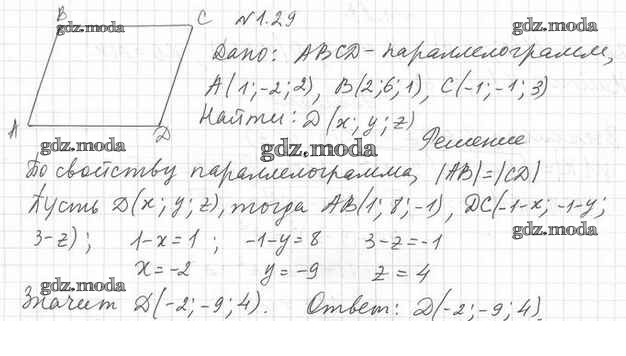 B
gdz.moda
C
№1.29
gdz.moda
Дано: ABCD - параллелограмм,
A(1;-2;2), B(2;6;1), C(-1;-1;3)
Найти: D(x;y;z)
A
D
gdz.moda
gdz.moda
Решение
По свойству параллелограмма, |AB|=|CD|
Пусть D(x;y;z), тогда AB(1;8;-1), DC(-1-x;-1-y;
gdz.moda
3-z); 1-x=1; -1-y=8 3-z=-1
x=-2 y=-9 z=4
gdz.moda
Значит D(-2;-9;4). Ответ: D(-2;-9;4).